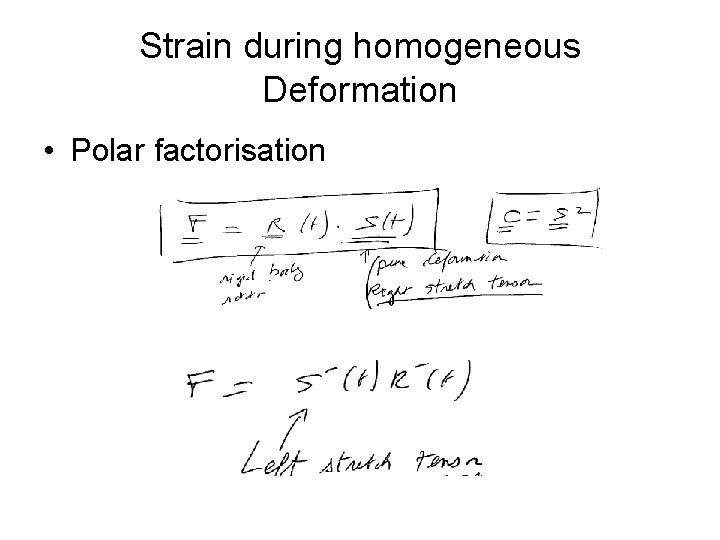 Strain during homogeneous
Deformation
• Polar factorisation
F = R (t) . S(t)
C = S²
rigid body
(pure deformation
Right stretch tensor
F = S⁻(t) R⁻(t)
Left stretch tensor